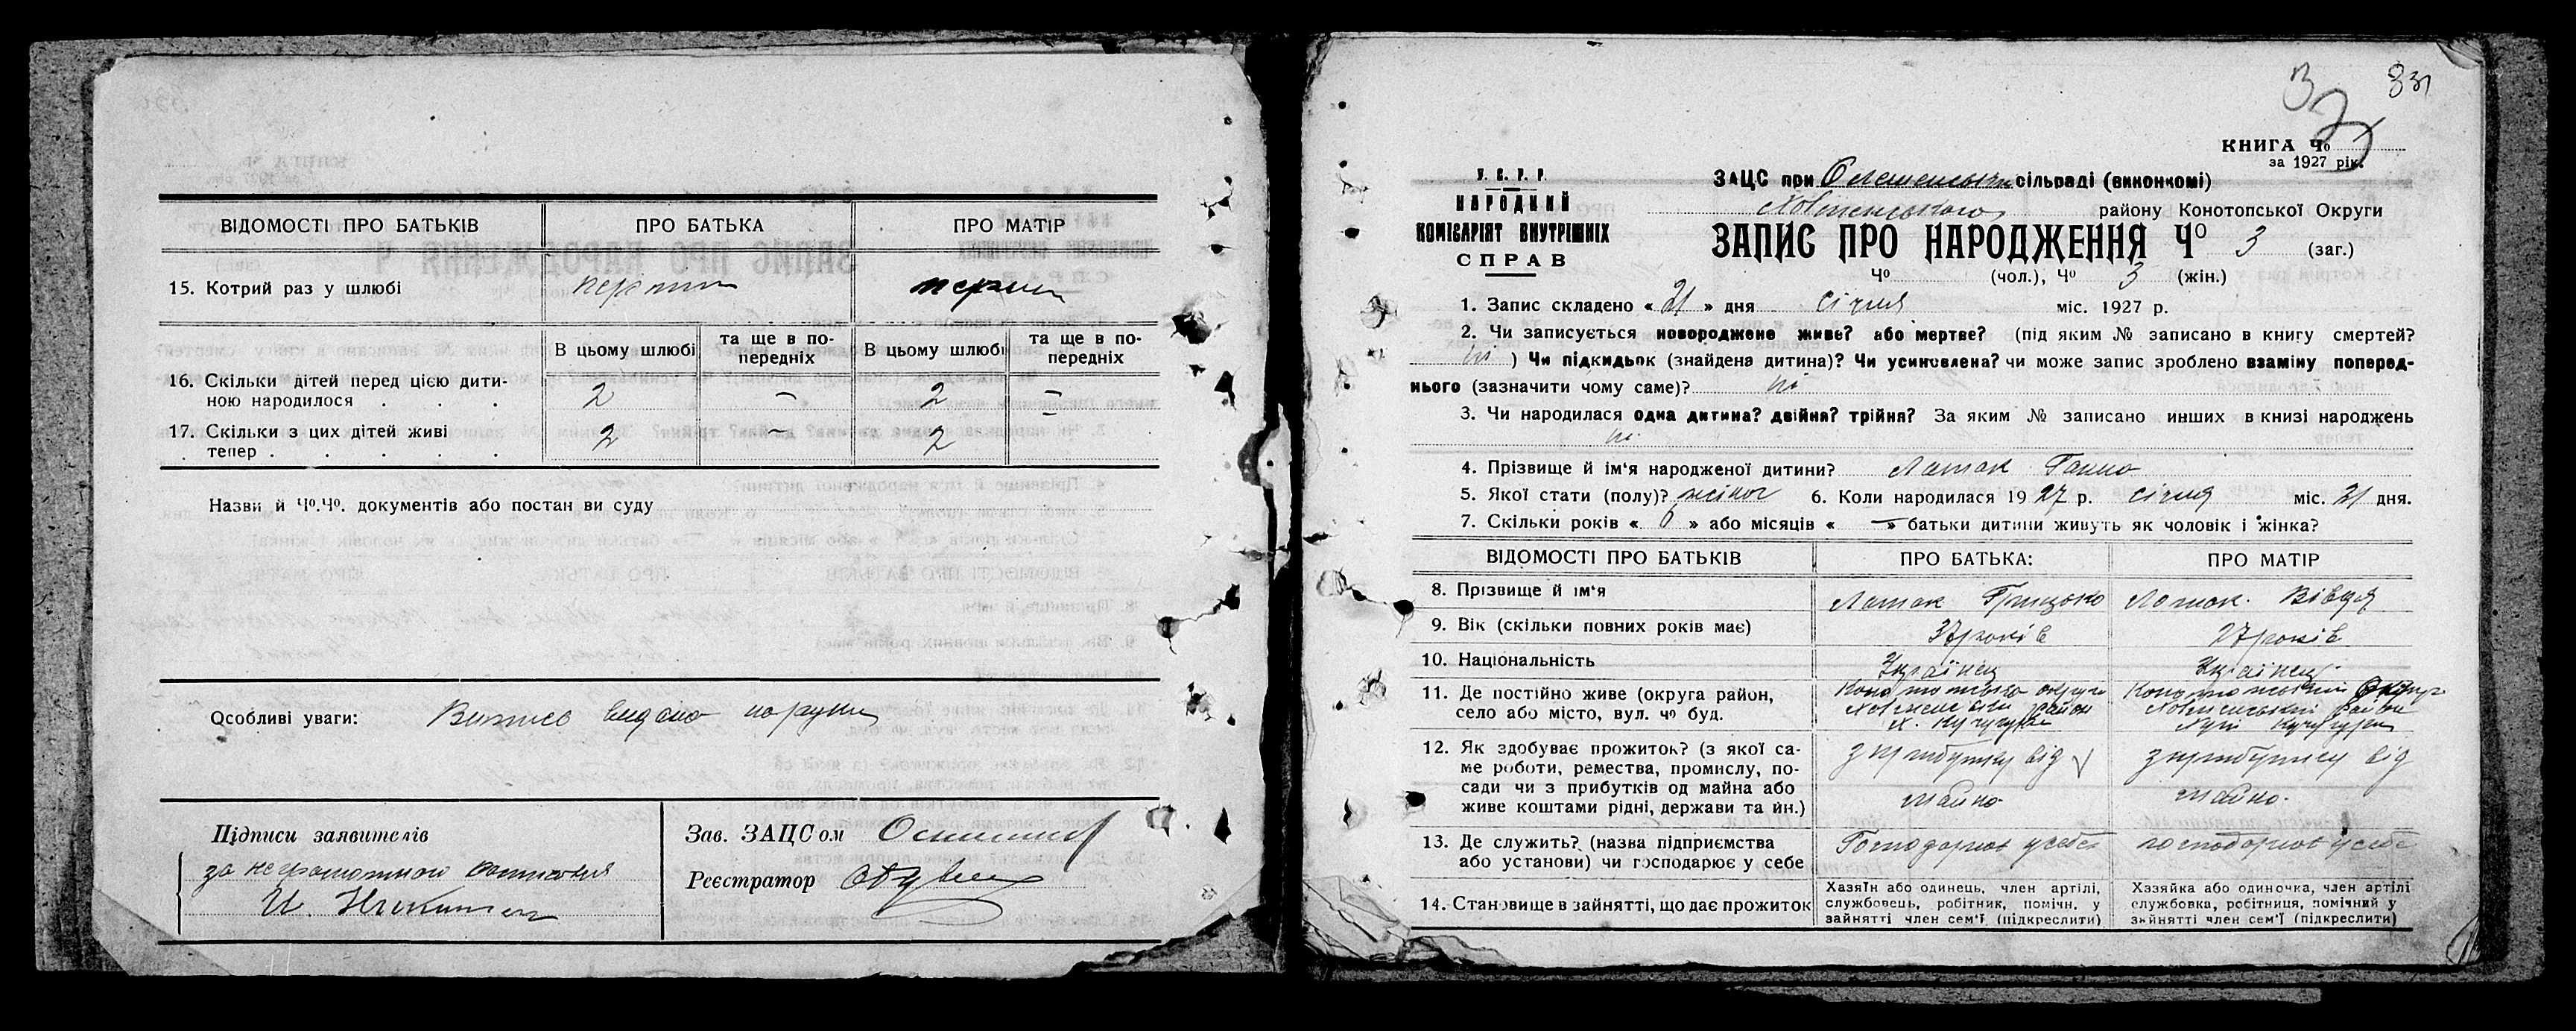 ВІДОМОСТІ ПРО БАТЬКІВ ПРО БАТЬКА ПРО МАТІР
15. Котрий раз у шлюбі перший перший
В цьому шлюбі та ще в по-передніх В цьому шлюбі та ще в по-передніх
16. Скільки дітей перед цією дити-
ною народилося . . . 2 – 2 –
17. Скільки з цих дітей живі
тепер . . . . . 2 – 2 –
Назви й Чо.Чо. документів або постан ви суду
Особливі уваги: Випись видано на руки
Підписи заявителів
за неграмотного
И. Никитен
Зав. ЗАЦСом
Реєстратор
331
32
КНИГА Чо
за 1927 рік.
У. С. Р. Р.
НАРОДНИЙ
КОМІСАРІЯТ ВНУТРІШНІХ
СПРАВ
ЗАЦС при сільраді (виконкомі)
району Конотопської Округи
ЗАПИС ПРО НАРОДЖЕННЯ Чо 3 (заг.)
Чо (чол.), Чо 3 (жін.)
1. Запис складено « 21 » дня січня міс. 1927 р.
2. Чи записується новороджене живе? або мертве? (під яким № записано в книгу смертей?
ні ) Чи підкидьок (знайдена дитина)? Чи усиновлена? чи може запис зроблено взаміну поперед-
нього (зазначити чому саме)? ні
3. Чи народилася одна дитина? двійня? трійня? За яким № записано инших в книзі народжень
ні
4. Прізвище й ім'я народженої дитини? Латак Ганна
5. Якої стати (полу)? жіноч 6. Коли народилася 19 27 р. січня міс. 21 дня.
7. Скільки років « 6 » або місяців « — » батьки дитини живуть як чоловік і жінка?
ВІДОМОСТІ ПРО БАТЬКІВ ПРО БАТЬКА: ПРО МАТІР
8. Прізвище й ім'я Латак Грицько Латак Вівдя
9. Вік (скільки повних років має) 37 років 27 років
10. Національність Українец Українец
11. Де постійно живе (округа район,
село або місто, вул. чо буд.
Конотопська округа район х. Кучугури
Конотопський Округ район Хут Кучугури
12. Як здобуває прожиток? (з якої са-
ме роботи, ремества, промислу, по-
сади чи з прибутків од майна або
живе коштами рідні, держави та йн.)
з прибутку від майно
з прибутку від майно.
13. Де служить? (назва підприємства
або установи) чи господарює у себе
Господарює у себе господарює у себе
14. Становище в зайнятті, що дає прожиток
Хазяїн або одинець, член артілі,
службовець, робітник, помічн. у
зайнятті член сем'ї (підкреслити)
Хазяйка або одиночка, член артілі
службовка, робітниця, помічний у
зайнятті член сем'ї (підкреслити)